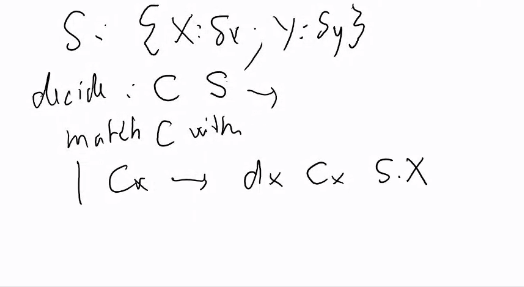 S: {X: Sx; Y: Sy}
decide : C S →
match C with
| Cx → dx Cx S.X